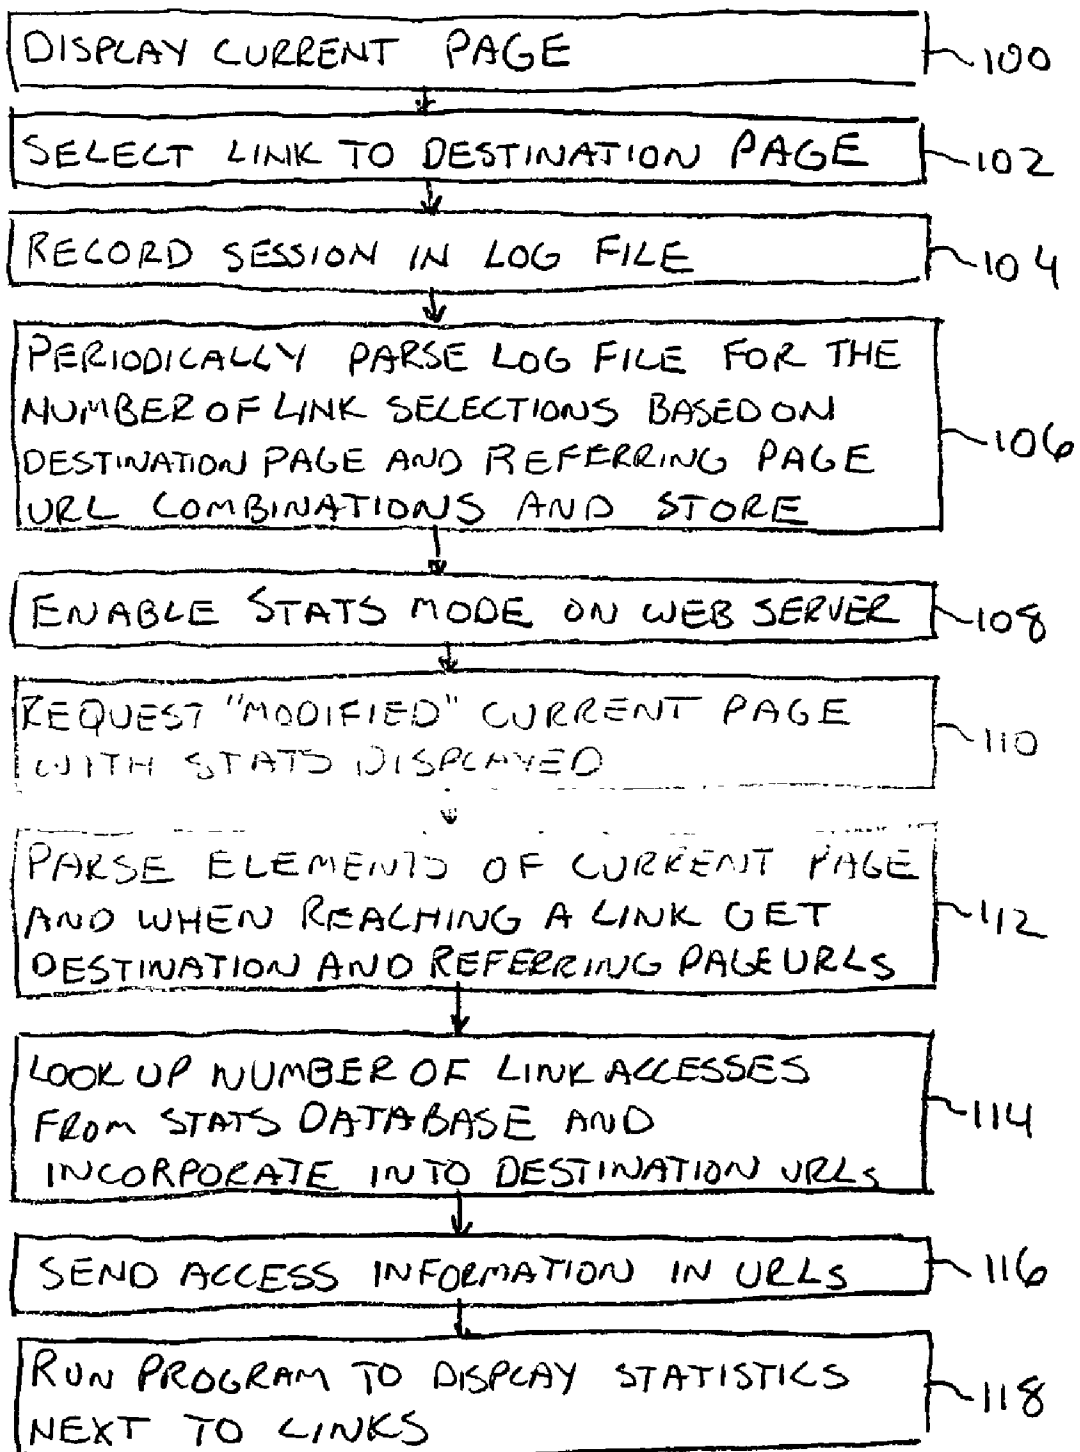 DISPLAY CURRENT PAGE
100
SELECT LINK TO DESTINATION PAGE
102
RECORD SESSION IN LOG FILE
104
PERIODICALLY PARSE LOG FILE FOR THE
NUMBER OF LINK SELECTIONS BASED ON
DESTINATION PAGE AND REFERRING PAGE
URL COMBINATIONS AND STORE
106
ENABLE STATS MODE ON WEB SERVER
108
REQUEST "MODIFIED" CURRENT PAGE
WITH STATS DISPLAYED
110
PARSE ELEMENTS OF CURRENT PAGE
AND WHEN REACHING A LINK GET
DESTINATION AND REFERRING PAGE URLs
112
LOOK UP NUMBER OF LINK ACCESSES
FROM STATS DATABASE AND
INCORPORATE INTO DESTINATION URLs
114
SEND ACCESS INFORMATION IN URLs
116
RUN PROGRAM TO DISPLAY STATISTICS
NEXT TO LINKS
118